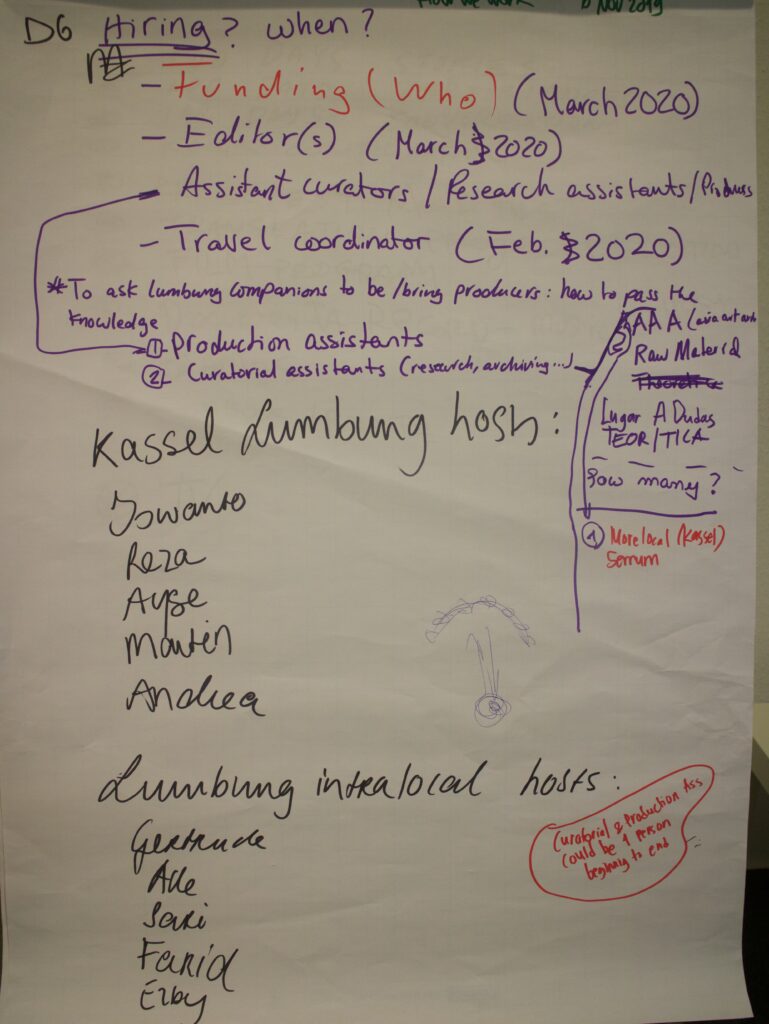 How we work 6 Nov 2019
D6 Hiring? when?
- Funding (Who) (March 2020)
- Editor(s) (March 2020)
- Assistant curators / Research assistants / Producers
- Travel coordinator (Feb. 2020)
* To ask lumbung companions to be / bring producers: how to pass the
knowledge
① Production assistants
② Curatorial assistants (research, archiving...)
AAA (asia art
Raw Material
Lugar A Dudas
TEOR/TICA
How many?
① More local (Kassel)
Serrum
Kassel Lumbung hosts:
Iswanto
Reza
Ayse
Andrea
Lumbung intralocal hosts:
Gertrude
Ade
Sari
Farid
Ezby
Curatorial & Production Ass
could be 1 person
beginning to end